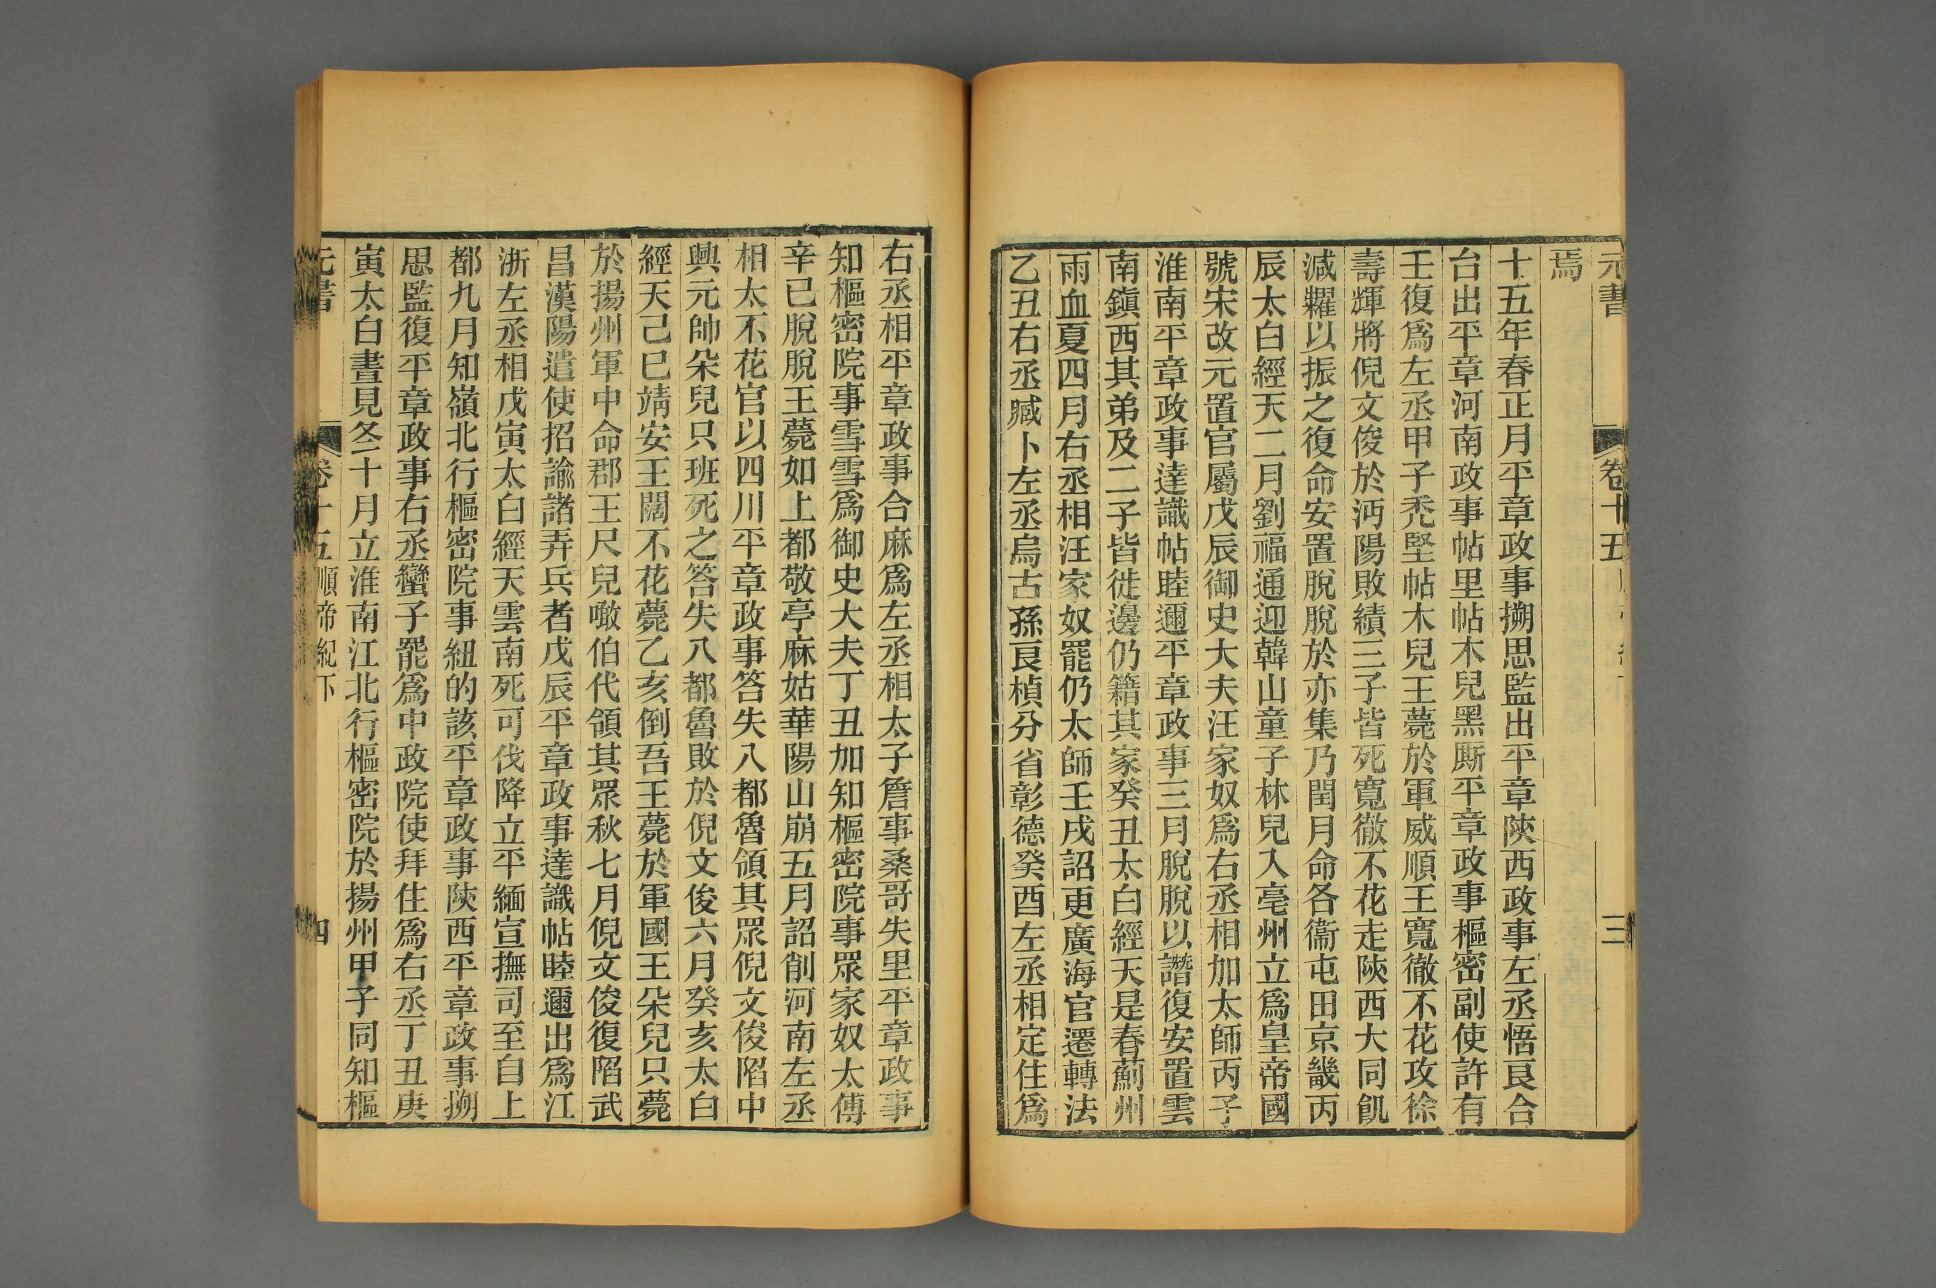 元書
卷十五
三
焉
十五年春正月平章政事搠思監出平章陝西政事左丞悟良合
台出平章河南政事帖里帖木兒黑厮平章政事樞密副使許有
壬復爲左丞甲子禿堅帖木兒王薨於軍威順王寬徹不花攻徐
壽輝將倪文俊於沔陽敗績三子皆死寬徹不花走陝西大同飢
減糶以振之復命安置脫脫於亦集乃閏月命各衞屯田京畿丙
辰太白經天二月劉福通迎韓山童子林兒入亳州立爲皇帝國
號宋改元置官屬戊辰御史大夫汪家奴爲右丞相加太師丙子
淮南平章政事達識帖睦邇平章政事三月脫脫以譖復安置雲
南鎭西其弟及二子皆徙邊仍籍其家癸丑太白經天是春薊州
雨血夏四月右丞相汪家奴罷仍太師壬戌詔更廣海官遷轉法
乙丑右丞臧卜左丞烏古孫良楨分省彰德癸酉左丞相定住爲
右丞相平章政事合麻爲左丞相太子詹事桑哥失里平章政事
知樞密院事雪雪爲御史大夫丁丑加知樞密院事眾家奴太傅
辛已脫脫王薨如上都敬亭麻姑華陽山崩五月詔削河南左丞
相太不花官以四川平章政事答失八都魯領其眾倪文俊陷中
興元帥朵兒只班死之答失八都魯敗於倪文俊六月癸亥太白
經天己巳靖安王闊不花薨乙亥倒吾王薨於軍國王朵兒只薨
於揚州軍中命郡王尺兒噉伯代領其眾秋七月倪文俊復陷武
昌漢陽遣使招諭諸弄兵者戊辰平章政事達識帖睦邇出爲江
浙左丞相戊寅太白經天雲南死可伐降立平緬宣撫司至自上
都九月知嶺北行樞密院事紐的該平章政事陝西平章政事搠
思監復平章政事右丞蠻子罷爲中政院使拜住爲右丞丁丑庚
寅太白晝見冬十月立淮南江北行樞密院於揚州甲子同知樞
元書
卷十五順帝紀下
四